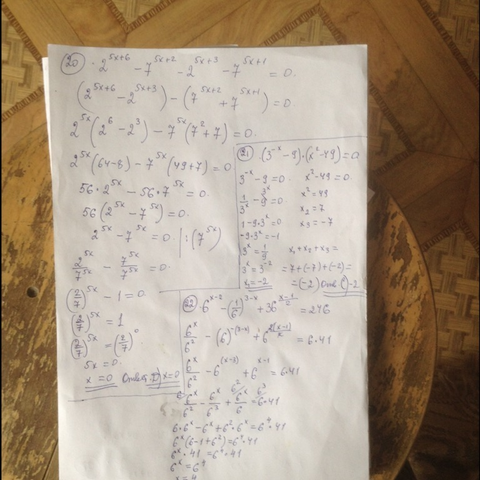 20. 2^{5x+6} - 7^{5x+2} - 2^{5x+3} - 7^{5x+1} = 0.
(2^{5x+6} - 2^{5x+3}) - (7^{5x+2} + 7^{5x+1}) = 0
2^{5x}(2^6 - 2^3) - 7^{5x}(7^2 + 7) = 0.
2^{5x}(64-8) - 7^{5x}(49+7) = 0
56·2^{5x} - 56·7^{5x} = 0
56(2^{5x} - 7^{5x}) = 0.
2^{5x} - 7^{5x} = 0 |:(7^{5x})
2^{5x}/7^{5x} - 7^{5x}/7^{5x} = 0.
(2/7)^{5x} - 1 = 0.
(2/7)^{5x} = 1
(2/7)^{5x} = (2/7)^0
5x = 0.
x = 0 x=0
21. (3^{-x} - 9)·(x^2 - 49) = 0
3^{-x} - 9 = 0. x^2 - 49 = 0.
x^2 = 49
x_2 = 7
1 - 9·3^x = 0 x_3 = -7
-9·3^x = -1
3^x = 1/9 x_1 + x_2 + x_3 =
3^x = 3^{-2} = 7 + (-7) + (-2) =
x_1 = -2 = (-2) -2
22. 6^{x-2} - (1/6)^{3-x} + 36^{(x-1)/2} = 246
6^x/6^2 - (6)^{-(3-x)} + 6^{2(x-1)/2} = 6·41
6^x/6^2 - 6^{(x-3)} + 6^{x-1} = 6·41
6^x/6^2 - 6^x/6^3 + 6^x/6 = 6·41
6·6^x - 6^x + 6^2·6^x = 6^4·41
6^x(6-1+6^2) = 6^4·41
6^x·41 = 6^4·41
6^x = 6^4
x = 4